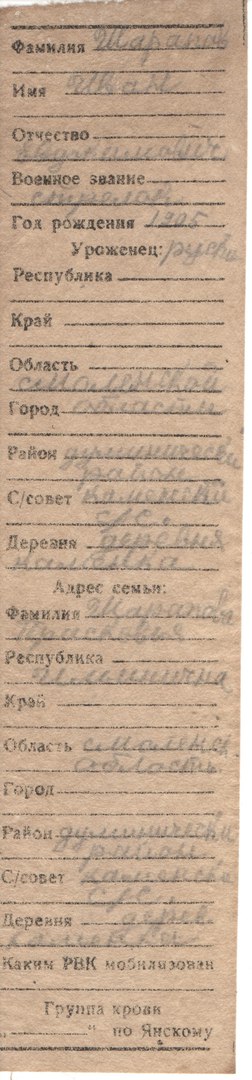 Фамилия Шарапов
Имя Иван
Отчество
Военное звание
Год рождения 1905
Уроженец: руски
Республика
Край
Область
смоленской
Город области
Район думиничски
район
С/совет каменски
с/с
Деревня деревня
Адрес семьи:
Фамилия Шарапова
Республика
Илиинична
Край
Область смоленск
область
Город
Район думиничски
район
С/совет каменски
с/с
Деревня дерев
Каким РВК мобилизован
Группа крови
„ “ по Янскому